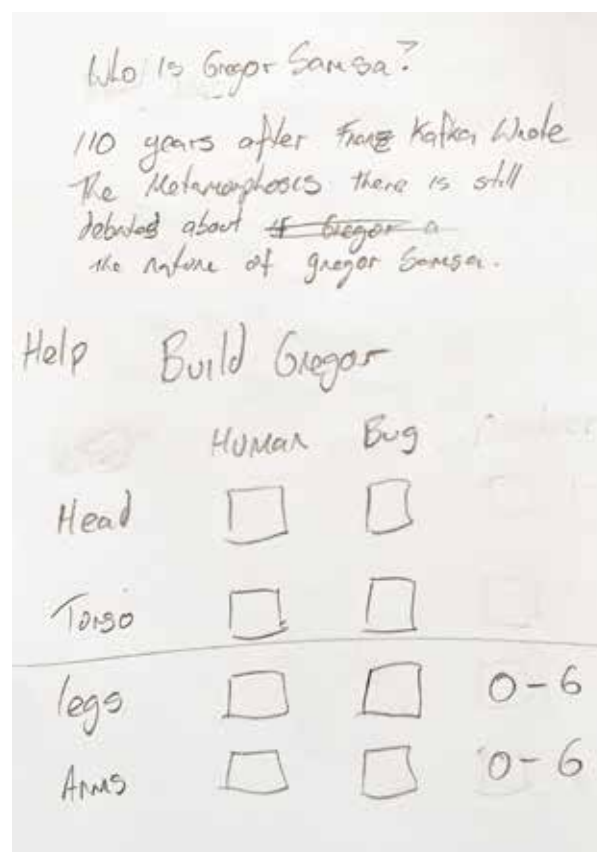 Who is Gregor Samsa?
110 years after Franz Kafka Wrote
The Metamorphosis there is still
debated about if Gregor a
the nature of gregor Samsa.
Help Build Gregor
Human Bug
Head
Torso
legs 0-6
Arms 0-6